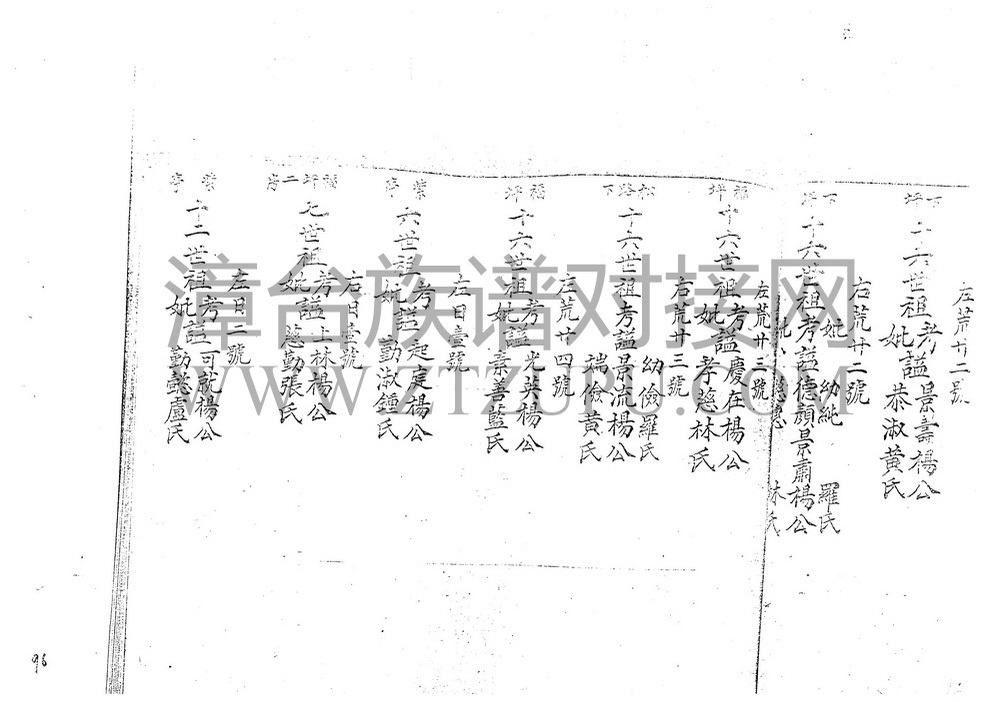 左荒廿二號
下坪
十六世祖考謚景壽楊公
妣謚恭淑黃氏
右荒廿二號
下坪
妣 幼純 羅氏
十六世祖考謚德顏景肅楊公
林氏
左荒廿三號
福坪
十六世祖考謚慶在楊公
妣 孝慈林氏
右荒廿三號
松路下
幼儉羅氏
十六世祖考謚景流楊公
瑞儉黃氏
左荒廿四號
福坪
十六世祖考謚光英楊公
妣 素善藍氏
左日壹號
紫亭
六世祖考謚起庭楊公
妣 勤淑鍾氏
右日壹號
福坪二房
九世祖考謚上林楊公
妣 慈勤張氏
左日二號
紫亭
十二世祖考謚可就楊公
妣 勤懿盧氏
96
漳台族谱对接网
WWW.ZTZUPU.COM